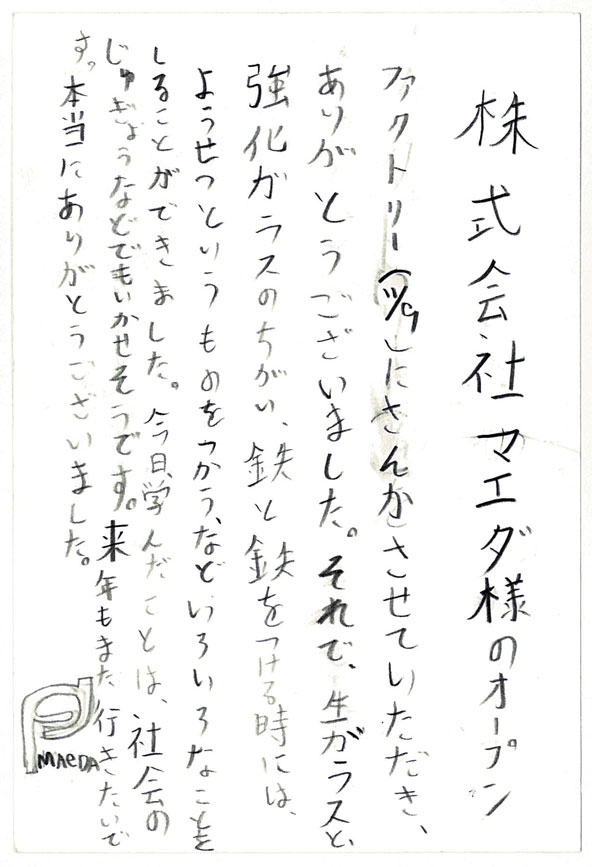 株式会社マエダ様のオープン
ファクトリー(11/9)にさんかさせていただき、
ありがとうございました。それで、生ガラスと、
強化ガラスのちがい、鉄と鉄をつける時には、
ようせつというものをつかう、などいろいろなことを
しることができました。今日学んだことは、社会の
じゅぎょうなどでもいかせそうです。来年もまた行きたいで
す。本当にありがとうございました。
MAeDA